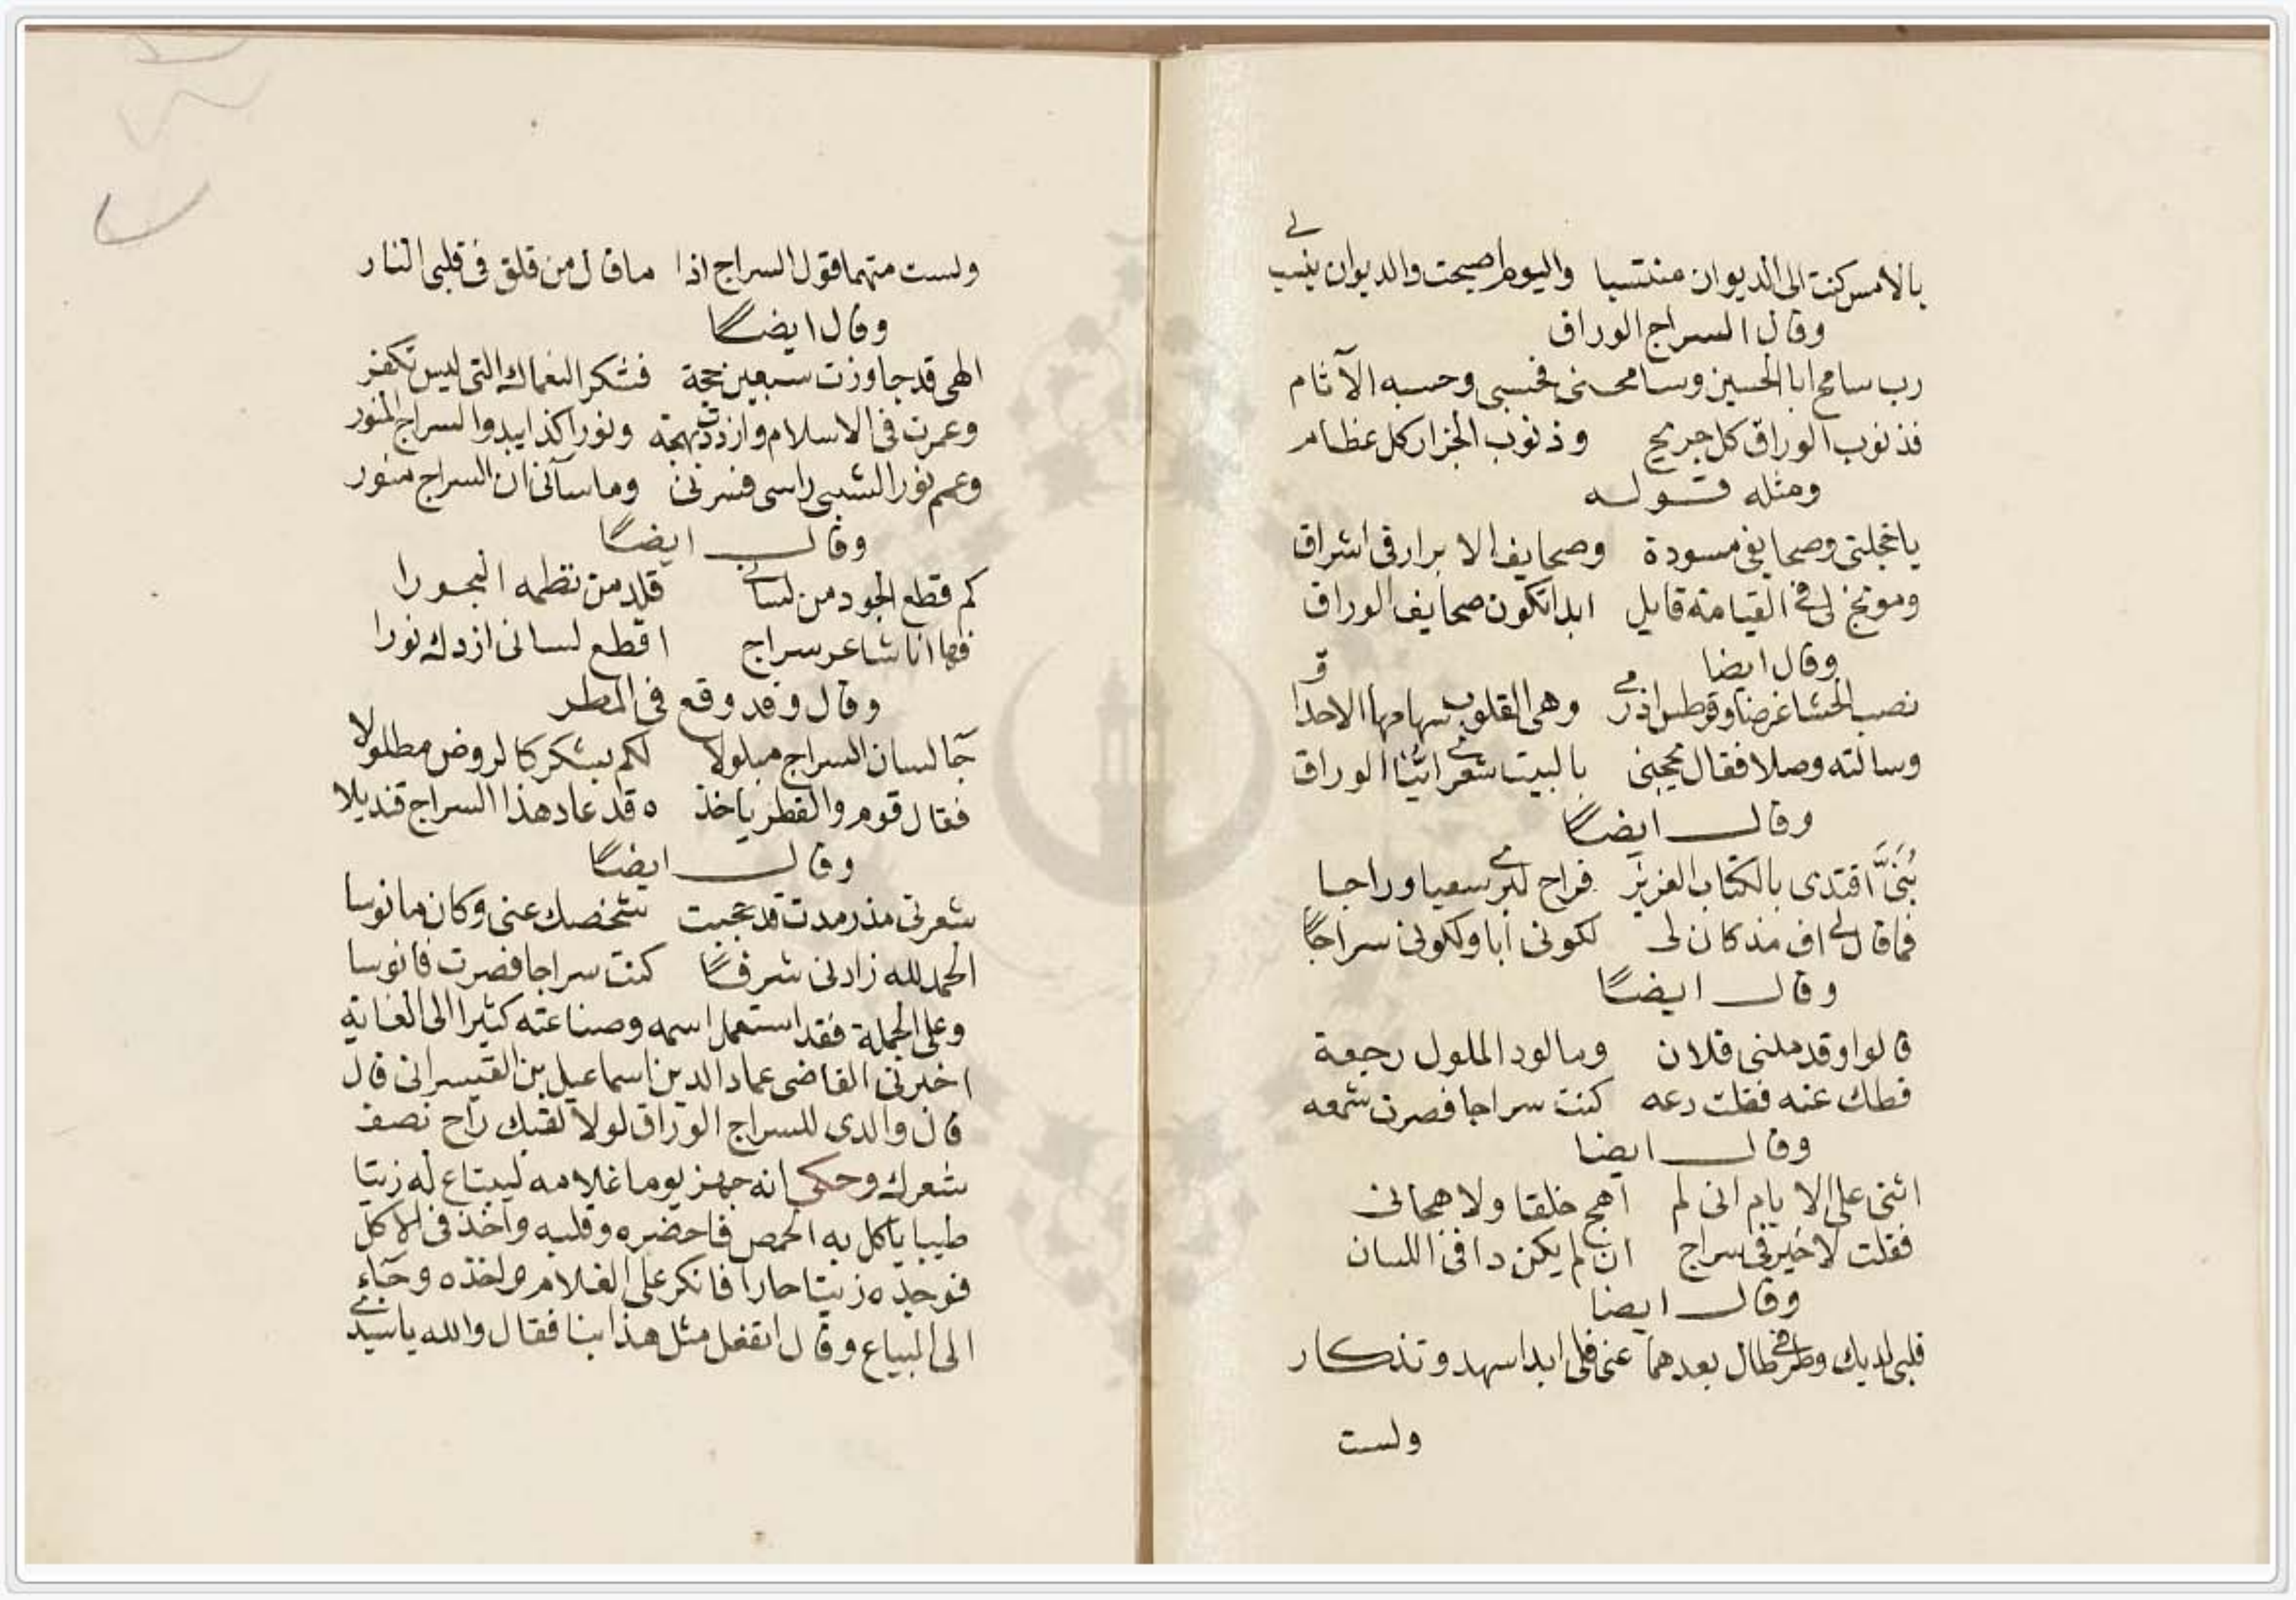 بالامس كنت الى الديوان منتسبا واليوم اصبحت والديوان ينسب لي
وقال السراج الوراق
رب سامح ابا الحسين وسامحنى فحسبى وحسبه الآثام
فذنوب الوراق كل جريح وذنوب الجزار كل عظام
ومثله قوله
ياخجلتى وصحايفى مسودة وصحايف الابرار فى اشراق
وموبخ لى فى القيامة قايل ابدا تكون صحايف الوراق
وقال ايضا
نصب الحشا غرضا وقرطس اذ رمى وهى القلوب سهامها الاحداق
وسالته وصلا فقال محبنى بالبيت شعرى ايتنا الوراق
وقال ايضًا
بُنَىَّ اقتدى بالكتاب العزيز فراح لبرى سعيا وراجا
فما قال لى اف مذ كان لى لكونى ابا ولكونى سراجًا
وقال ايضًا
قالوا وقد ملنى فلان وما لود الملول رجعة
قطك عنه فقلت دعه كنت سراجا فصرت شمعه
وقال ايضا
اثنى على الايام انى لم اهج خلقا ولا هجانى
فقلت لا خير فى سراج ان لم يكن دافئ اللسان
وقال ايضا
قلبى لديك وطرفى طال بعدهما عنى فلى ابدا سهد وتذكار
ولست
ولست متهما قول السراج اذا ما قال من قلق فى قلبى النار
وقال ايضًا
الهى قد جاوزت سبعين حجة فشكرا لنعماك التى ليس تكفر
وعمرت فى الاسلام وازددت بهجة ونورا كذا يبدو السراج المنور
وعمم نور الشيب راسى فسرنى وما سآنى ان السراج منور
وقال ايضًا
كم قطع الجود من لسان قلد من نظمه النحورا
فها انا شاعر سراج اقطع لسانى ازدك نورا
وقال وقد وقع فى المطر
جآ لسان السراج مبلولا لكم بشكر كالروض مطلولا
فقال قوم والقطر ياخذه قد عاد هذا السراج قنديلا
وقال ايضًا
شعرتى مذ رمدت قد حجبت شخصك عنى وكان مانوسا
الحمد لله زادنى شرفًا كنت سراجا فصرت فانوسا
وعلى الجملة فقد استعمل اسمه وصناعته كثيرا الى الغاية
اخبرنى القاضى عماد الدين اسماعيل بن القيسرانى قال
قال والدى للسراج الوراق لولا لقبك راح نصف
شعرك وحكى انه جهز يوما غلامه ليبتاع له زيتا
طيبا ياكل به الحمص فاحضره وقلبه واخذ فى الاكل
فوجده زيتا حارا فانكر على الغلام واخذه وجآء
الى البياع وقال اتفعل مثل هذا بنا فقال والله ياسيدى